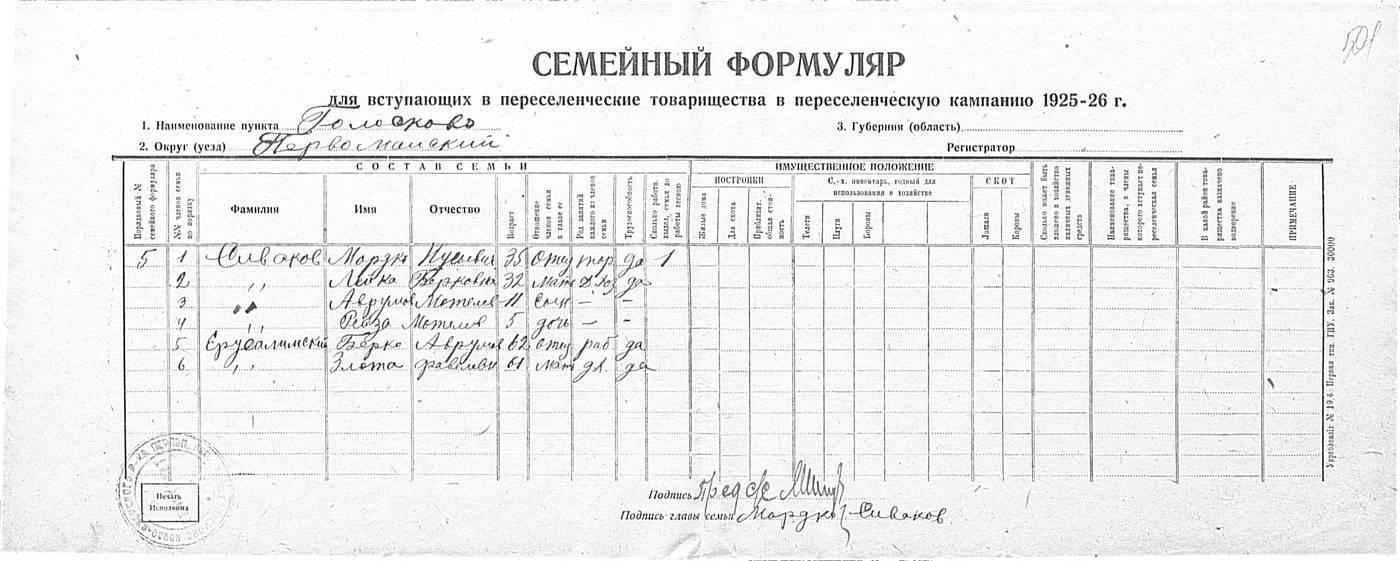 501
СЕМЕЙНЫЙ ФОРМУЛЯР
для вступающих в переселенческие товарищества в переселенческую кампанию 1925-26 г.
1. Наименование пункта Голосково 3. Губерния (область)
2. Округ (уезд) Первомайский Регистратор
СОСТАВ СЕМЬИ ИМУЩЕСТВЕННОЕ ПОЛОЖЕНИЕ
Порядковый № семейного формуляра
№№ членов семьи по порядку
Фамилия
Имя
Отчество
Возраст
Отношение членов семьи к главе ее
Род занятий каждого из членов семьи
Трудоспособность
Сколько работн. выдел. семья до работы весною
ПОСТРОЙКИ
Жилые дома
Для скота
Приблизит. общая стоимость
С.-х. инвентарь, годный для использования в хозяйстве
Телеги
Плуги
Бороны
СКОТ
Лошади
Коровы
Сколько может быть вложено в хозяйство наличных денежных средств
Наименование товарищества, в члены которого вступает переселенческая семья
В какой район товарищества назначено водворение
ПРИМЕЧАНИЕ
5 1 Сиваков Мордко 35 отец тор да 1
2 ,, Лейка Берковна 32 мать д. хоз да
3 ,, Аврумов Мотелев 11 сын — —
4 ,, Рейза Мотелев 5 дочь — —
5 Єрусалимский Берко Аврумов 62 отец раб да
6 ,, Злота 61 мать д.х. да
Печать
Исполкома
Подпись Пред
Подпись главы семьи Мордко Сиваков
Укрголовліт № 19,6. Первая тип. ГПУ. Зак. № 963. 30000